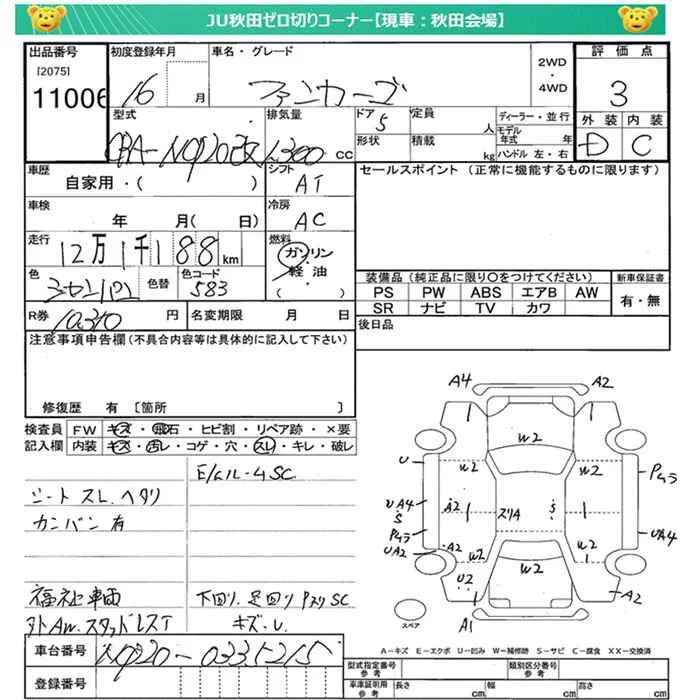 JU秋田ゼロ切りコーナー【現車：秋田会場】
出品番号 初度登録年月 車名・グレード 2WD・4WD 評価点
[2075]
11006 16 月 ファンカーゴ 3
型式 排気量 ドア 定員 人 ディーラー・並行 外装 内装
CBA-NCP20改 1,300 cc 5 形状 積載 kg モデル年式 年 ハンドル 左・右 D C
車歴 シフト セールスポイント (正常に機能するものに限ります)
自家用・( ) AT
車検 冷房
年 月( 日) AC
走行 燃料
12万1千188km ガソリン 軽油・( )
色 色替 色コード 装備品 (純正品に限り○をつけてください) 新車保証書
583 PS PW ABS エアB AW 有・無
R券 SR ナビ TV カワ
10,310 円 名変期限 月 日 後日品
注意事項申告欄 (不具合内容等は具体的に記入して下さい)
修復歴 有 〔箇所 〕
検査員 FW キズ・飛石・ヒビ割・リペア跡・×要
記入欄 内装 キズ・汚レ・コゲ・穴・スレ・キレ・破レ
E/ルームSC
シート スレ.ヘタリ
カンバン 有
福祉車両 下回り.足回りPスリSC
外AW.スタッドレスT キズ.U.
車台番号 NCP20-0335215
登録番号
A4 A2
W2
U W2 W2 Pムラ
UA4 S A2 スリA S UA4
Pムラ
UA2 A2 W2 W2
U2 W2 A2
A1
スペア
A－キズ E－エクボ U－凹み W－補修跡 S－サビ C－腐食 XX－交換済
型式指定番号 参考 類別区分番号 参考
車庫証明用 参考 長さ cm 幅 cm 高さ cm